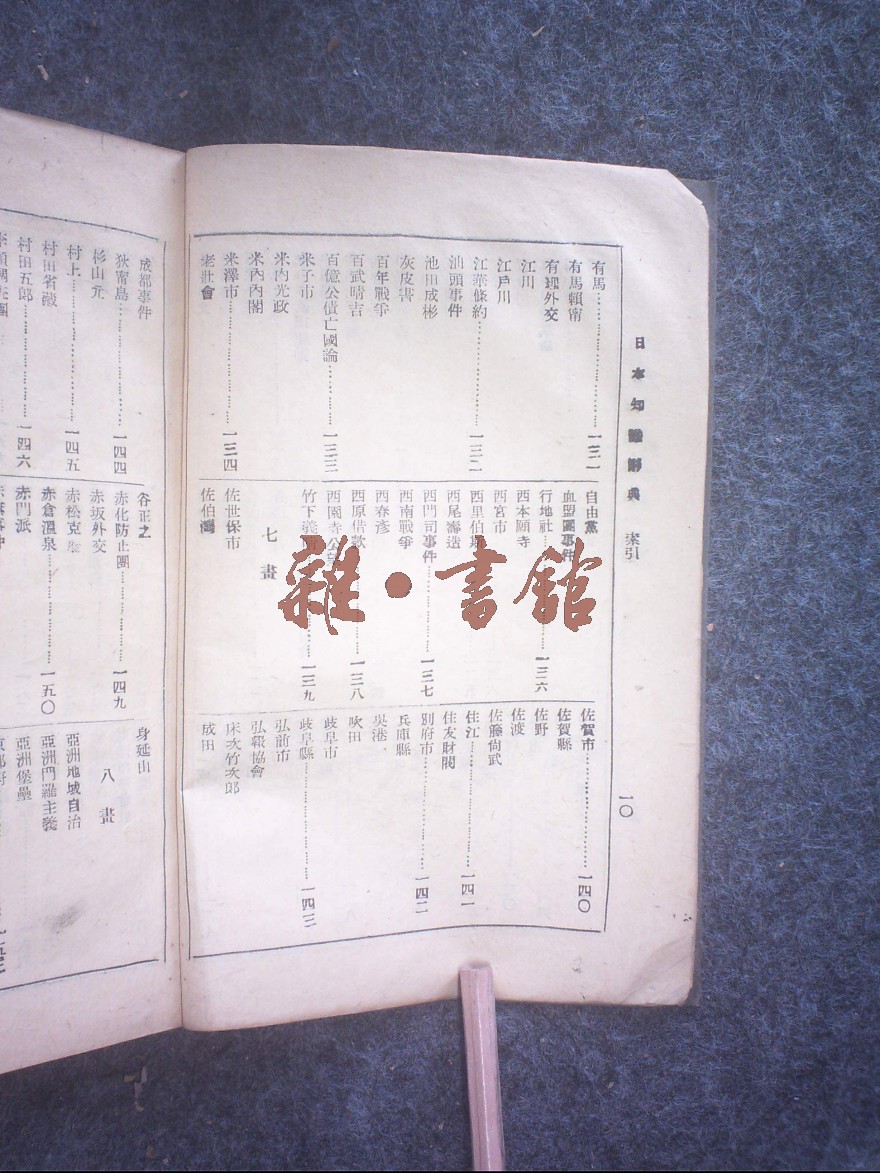 日本知識辭典 索引
一〇
有馬……一三一
有馬賴甯
有現外交
江川
江戶川
江華條約……一三二
汕頭事件
池田成彬
灰皮書
百年戰爭
百武晴吉
百億公債亡國論……一三三
米子市
米內光政
米內內閣
米澤市……一三四
老壯會
自由黨
血盟團事件
行地社……一三六
西本願寺
西宮市
西里伯斯
西尾壽造
西門司事件……一三七
西南戰爭
西春彥
西原借款……一三八
西園寺公望
竹下義晴……一三九
七畫
佐世保市
佐伯灣
佐賀市……一四〇
佐賀縣
佐野
佐渡
佐藤尙武
住江……一四一
住友財閥
別府市……一四二
兵庫縣
吳港
吹田
歧阜市
歧阜縣……一四三
弘前市
弘報協會
床次竹次郎
成田
成都事件
狄甯島……一四四
杉山元
村上……一四五
村田省藏
村田五郎……一四六
谷正之
赤化防止團……一四九
赤坂外交
赤松克麿
赤倉溫泉……一五〇
赤門派
身延山
八畫
亞洲地域自治
亞洲門羅主義
亞洲堡壘
雜·書館